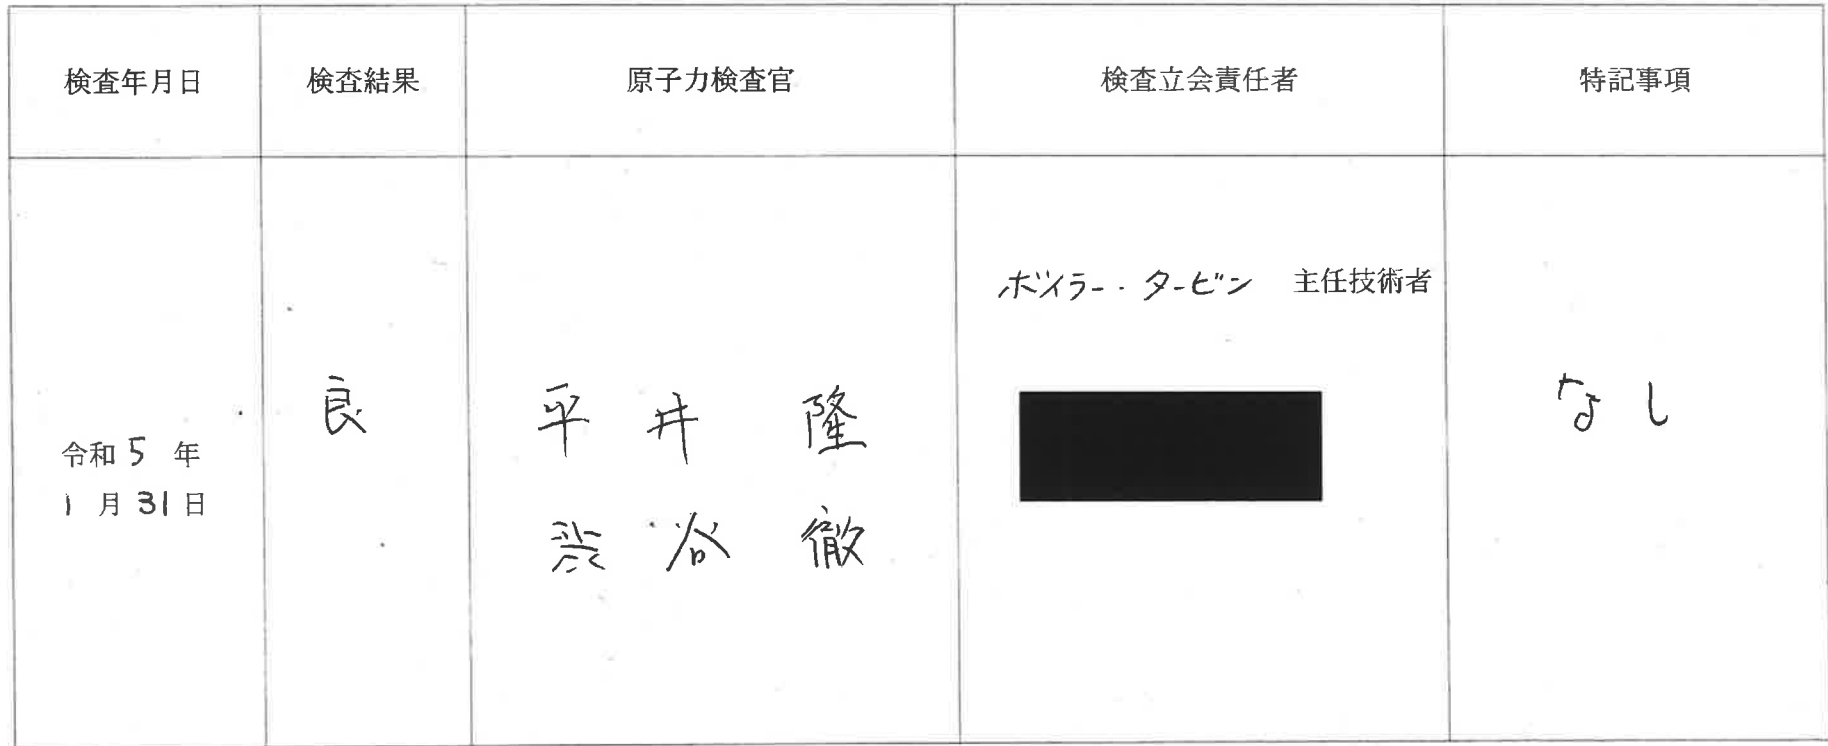 検査年月日
検査結果
原子力検査官
検査立会責任者
特記事項
令和5年
1月31日
良
平井 隆
渋谷 徹
ボイラー・タービン 主任技術者
なし